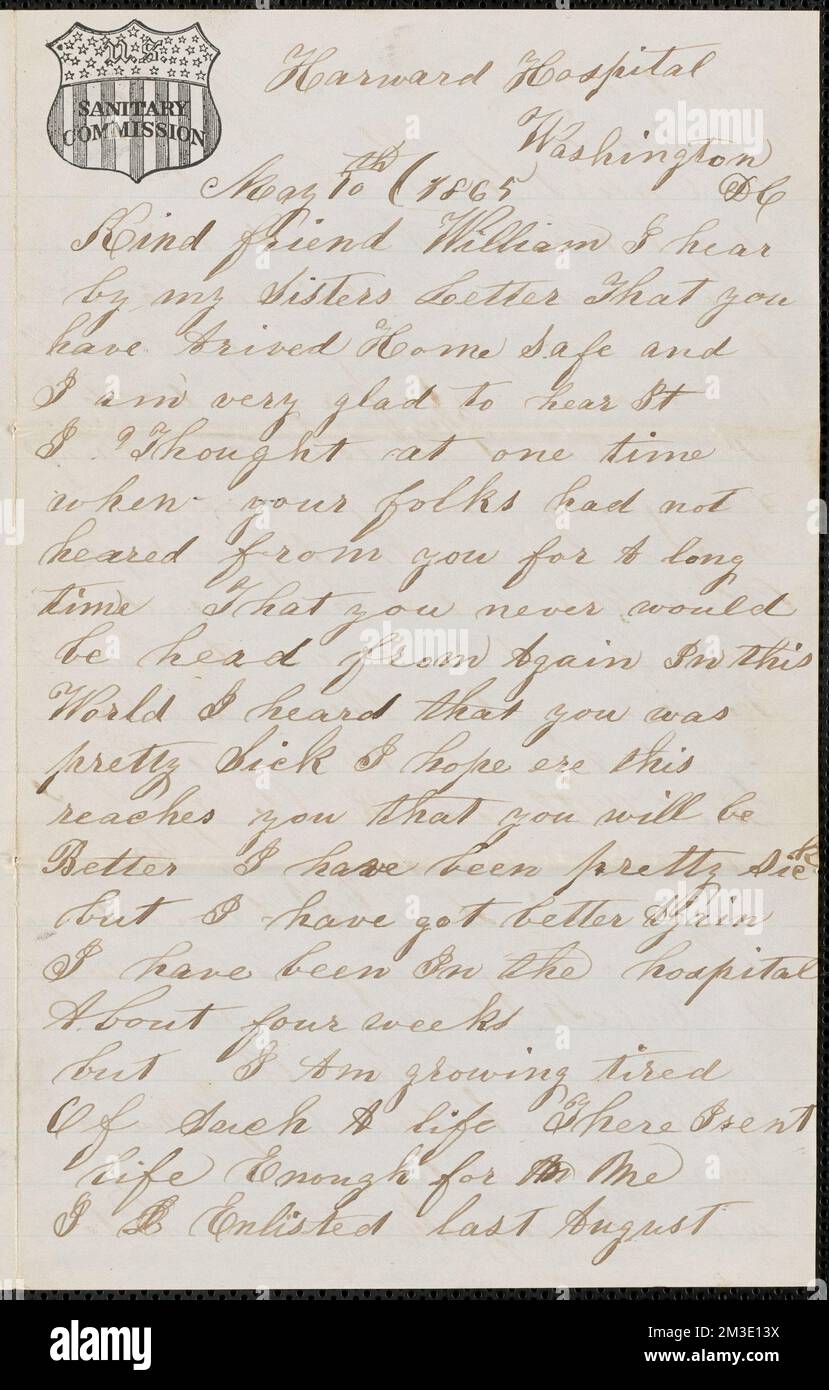 U.S.
SANITARY
COMMISSION
Harward Hospital
Washington
May 10th (1865 DC
Kind friend William I hear
by my Sisters Letter That you
have Arived Home Safe and
I am very glad to hear It
I Thought at one time
when your folks had not
heared from you for A long
time That you never would
be head from Again In this
World I heard that you was
pretty Sick I hope ere this
reaches you that you will be
Better I have been pretty Sick
but I have got better Again
I have been In the hospital
About four weeks
but I Am growing tired
Of Such A life There Isent
life Enough for Me
I Enlisted last August
alamy
alamy
Image ID: 2M3E13X
www.alamy.com